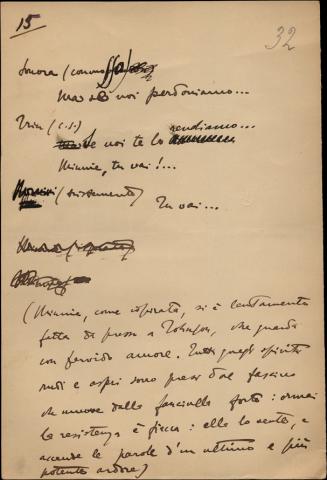 15
32
Sonora (commosso)
Ma se noi perdoniamo...
Trin (c.s.)
Se noi te lo rendiamo...
Minnie, tu vai!...
(
Tu vai...
(Minnie, come ispirata, si è lentamente
fatta da presso a Johnson, che guarda
con fervido amore. Tutti quegli spiriti
rudi e aspri sono presi dal fascino
che muove dalla fanciulla forte: ormai
la resistenza è fiacca: ella lo sente, e
accende le parole d'un ultimo e più
potente ardore)